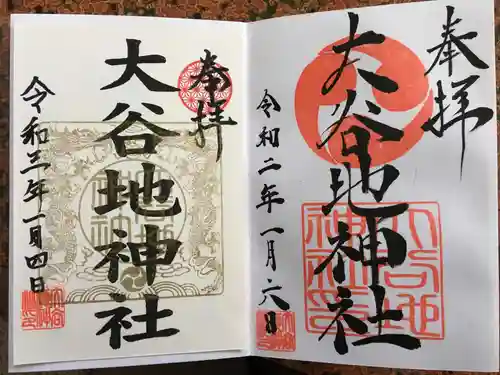 奉拝
大谷地神社
令和二年一月六日
奉拝
大谷地神社
令和三年一月四日